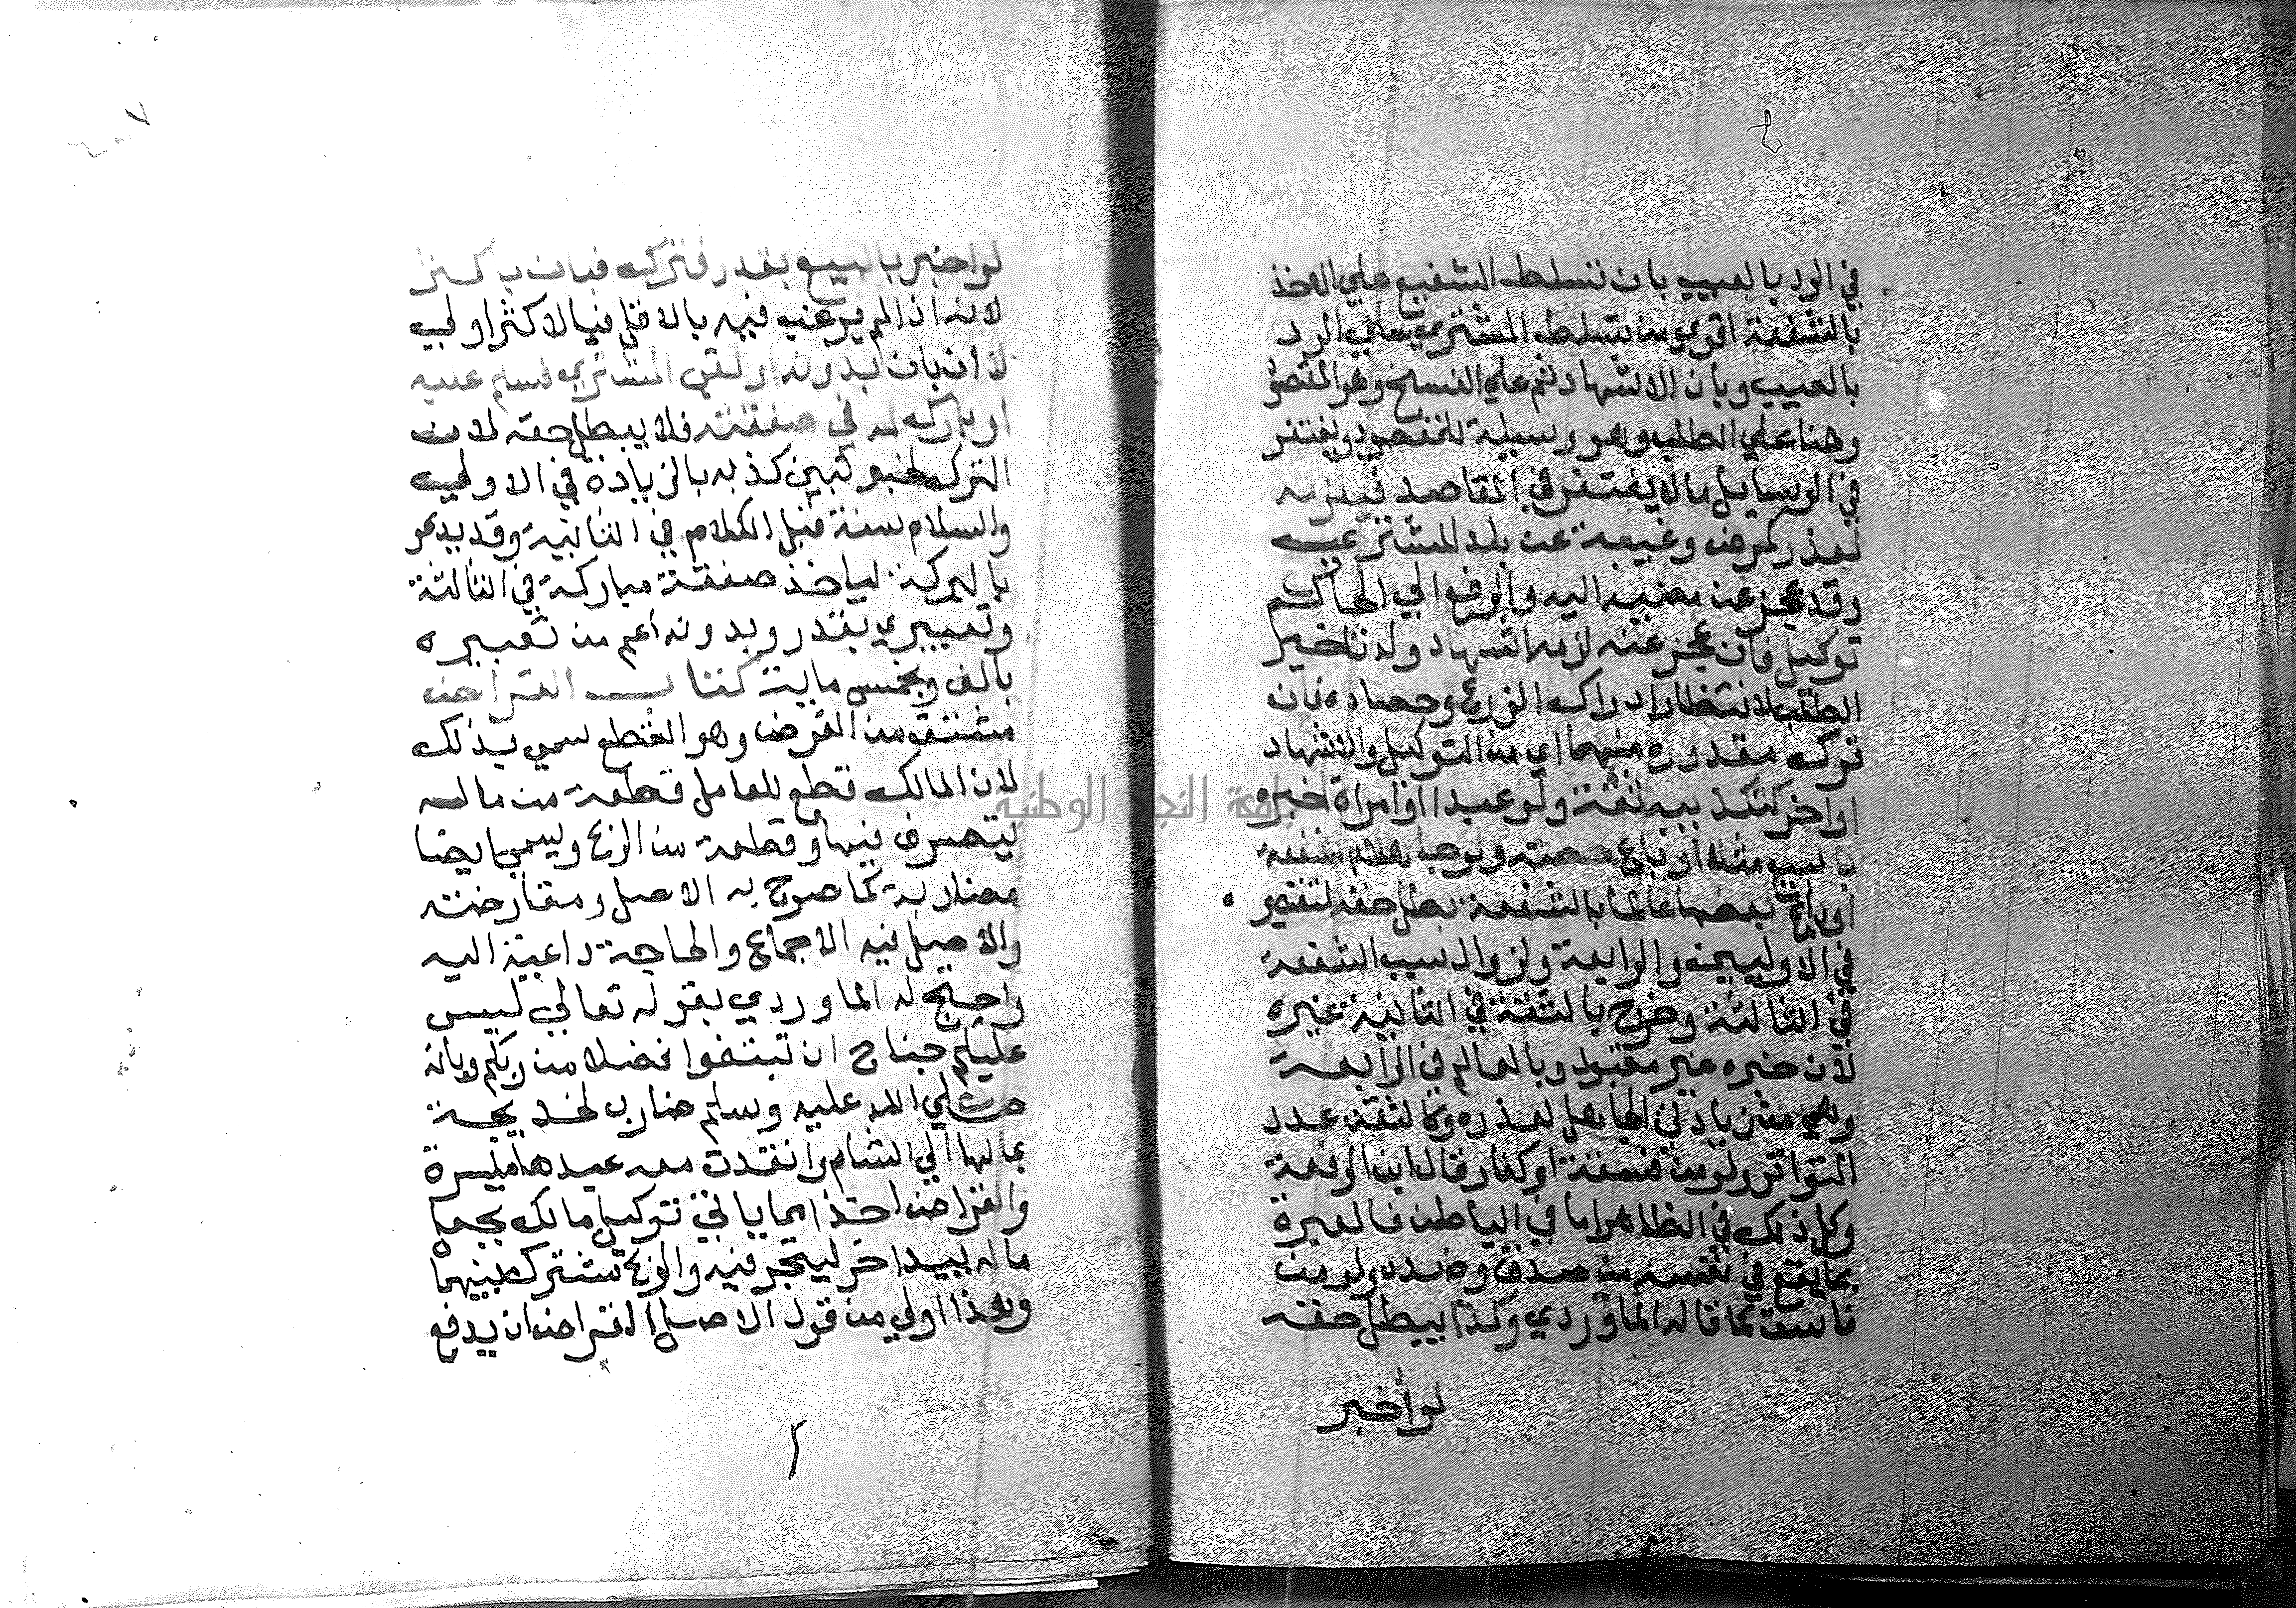 في الرد بالعيب بان تسلط الشفيع علي الاخذ
بالشفعة اقوي من تسلط المشتري علي الرد
بالعيب وبان الاشهاد ثم علي الفسخ وهو المقصود
وهنا علي الطلب وهو وسيلة للمقصود ويغتفر
في الوسايل ما لا يغتفر في المقاصد فيلزمه
لعذر كمرض وغيبة عن بلد المشتري
وقد عجز عن مضيه اليه والرفع الي الحاكم
توكيل فان عجز عنه لزمه اشهاد وله تاخير
الطلب لانتظار ادراك الزرع وحصاده فان
ترك مقدوره منهما اي من التوكيل والاشهاد
او اخر لتكذيبه ثقة ولو عبدا او امراة اخبره
بالبيع مثلا او باع حصته ولو جاهلا بالشفعة
او باع بعضها عالما بالشفعة بطل حقه لتقصيره
في الاوليين والرابعة ولزوال سبب الشفعة
في الثالثة وخرج بالثقة في الثانية غيره
لان خبره غير مقبول وبالعالم في الرابعة
وهي من زيادتي الجاهل لعذره وكالثقة عدد
التواتر ولو من فسقة او كفار قال ابن الرفعة
وكل ذلك في الظاهر اما في الباطن فالعبرة
بما يقع في نفسه من صدق وضده ولو من
فاسق كما قاله الماوردي وكذا يبطل حقه
لو أخبر
٧
لو اخبر بالبيع بقدر فتركه فبان باكثر
لانه اذا لم يرغب فيه بالاقل فبالاكثر اولي
لا ان بان بدونه او لقي المشتري فسلم عليه
او بارك له في صفقته فلا يبطل حقه لان
الترك لخبر تبين كذبه بالزيادة في الاولي
والسلام سنة قبل الكلام في الثانية وقد يدعو
بالبركة لياخذ صفقة مباركة في الثالثة
وتعبيري بقدر وبدونه اعم من تعبيره
بالف وبخمس ماية كتاب القراض
مشتق من القرض وهو القطع سمي بذلك
لان المالك قطع للعامل قطعة من ماله
ليتصرف فيها وقطعة من الربح ويسمي ايضا
مضاربة كما صرح به الاصل ومقارضة
والاصل فيه الاجماع والحاجة داعية اليه
واحتج له الماوردي بقوله تعالي ليس
عليكم جناح ان تبتغوا فضلا من ربكم وبانه
صلي الله عليه وسلم ضارب لخديجة
بمالها الي الشام وانفذت معه عبدها ميسرة
والقراض اخذا مما ياتي توكيل مالك بجعل
ماله بيد اخر ليتجر فيه والربح مشترك بينهما
وهذا اولي من قول الاصل القراض ان يدفع
جامعة النجاح الوطنية